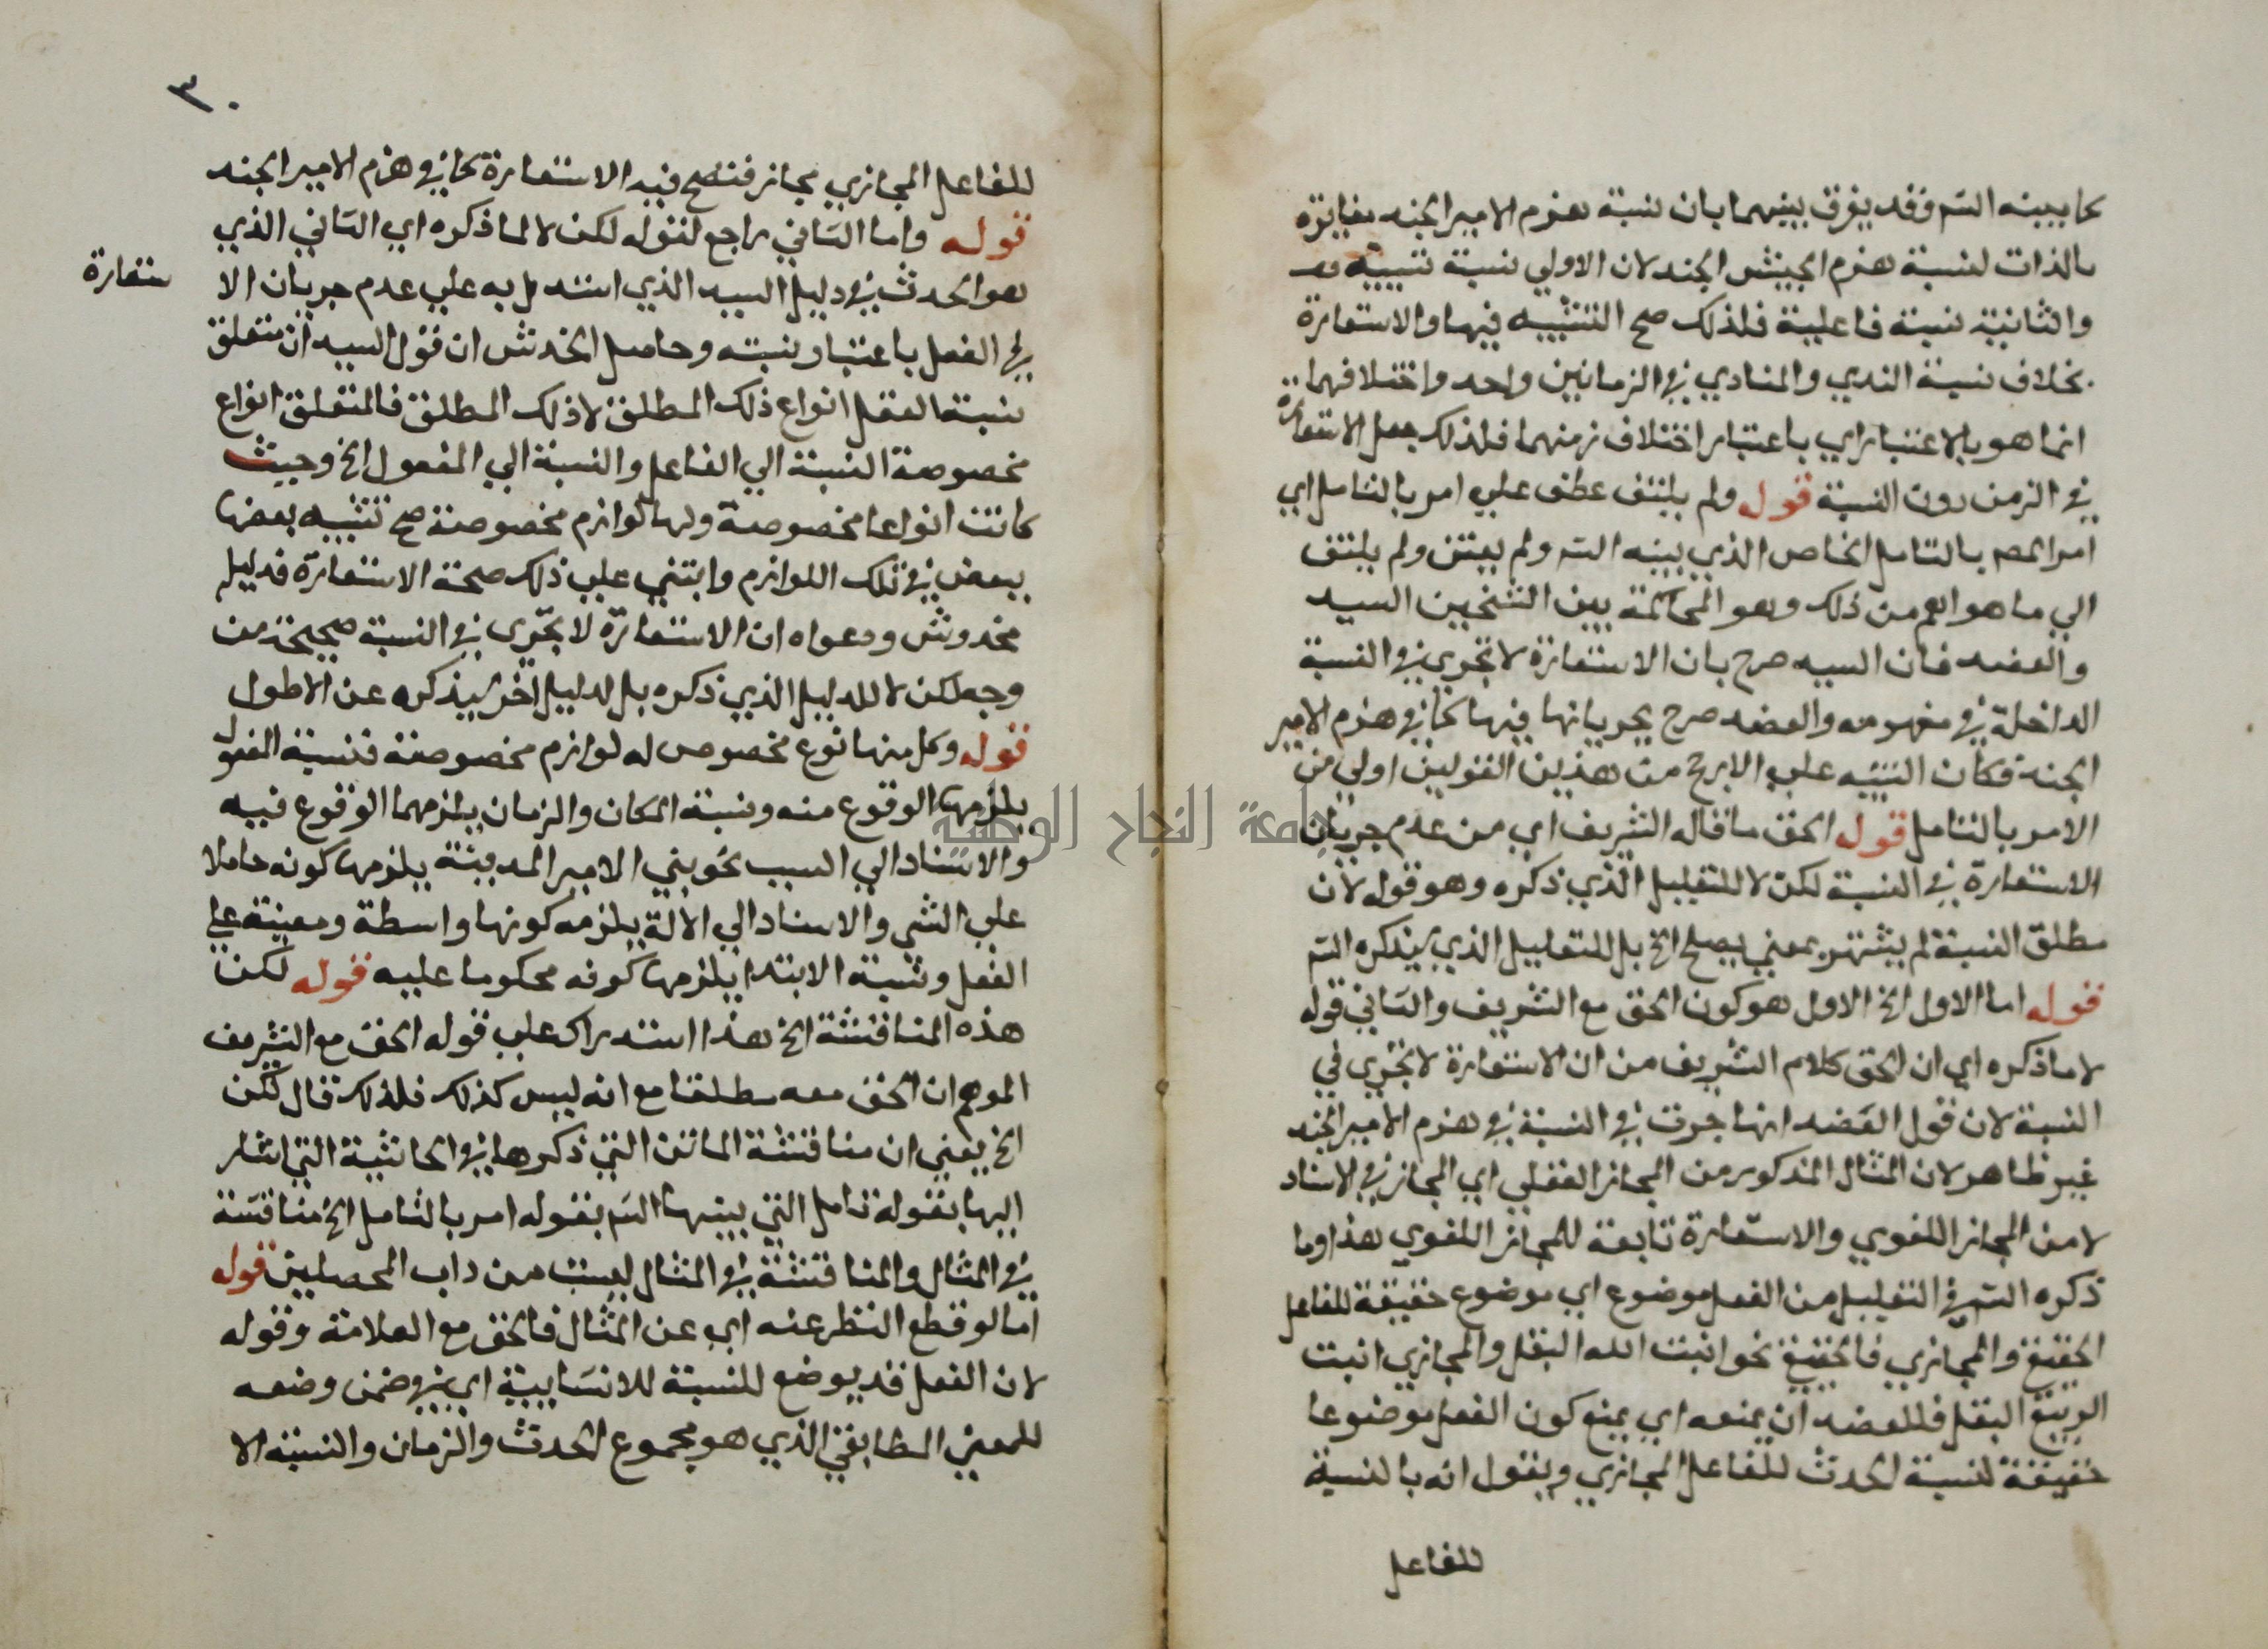 كما بينه الشم وقد يفرق بينهما بان نسبة هزم الامير الجند مغايرة
بالذات لنسبة هزم الجيش الجند لان الاولي نسبة تسببيه
والثانية نسبة فاعلية فلذلك صح التشبيه فيها والاستعارة
بخلاف نسبة الندي والمنادي في الزمانين واحد واختلافهما
انما هو بالاعتبار اي باعتبار اختلاف زمنهما فلذلك جعل الاستعارة
في الزمن دون النسبة قوله ولم يلتفت عطف علي امر بالتامل اي
امر المص بالتامل الخاص الذي بينه الشم ولم يعتن ولم يلتفت
الي ما هو اهم من ذلك وهو المحاكمة بين الشيخين السيد
والعضد فان السيد صرح بان الاستعارة لا تجري في النسبة
الداخلة في مفهومه والعضد صرح بجريانها فيها كما في هزم الامير
الجند فكان التنبيه علي الارجح من هذين القولين اولي من
الامر بالتامل قوله الحق ما قاله الشريف اي من عدم جريان
الاستعارة في النسبة لكن لا للتعليل الذي ذكره وهو قوله لان
مطلق النسبة لم يشتهر بمعني يصلح الخ بل للتعليل الذي سيذكره الشم
قوله اما الاول الخ الاول هو كون الحق مع الشريف والثاني قوله
لا ما ذكره اي ان الحق كلام الشريف من ان الاستعارة لا تجري في
النسبة لان قول العضد انها جرت في النسبة في هزم الامير الجند
غير ظاهر لان المثال المذكور من المجاز العقلي اي المجاز في الاسناد
لا من المجاز اللغوي والاستعارة تابعة للمجاز اللغوي هذا وما
ذكره الشم في التعليل من الفعل موضوع اي موضوع حقيقة للفاعل
الحقيقي والمجازي فالحقيقي نحو انبت الله البقل والمجازي انبت
الربيع البقل فللعضد ان يمنعه اي يمنع كون الفعل موضوعا
حقيقة لنسبة الحدث للفاعل المجازي ويقول انه بالنسبة
للفاعل
٣٠
للفاعل المجازي مجاز فتصح فيه الاستعارة كما في هزم الامير الجند
قوله واما الثاني راجع لقوله لكن لا لما ذكره اي الثاني الذي
هو الخدش في دليل السيد الذي استدل به علي عدم جريان الا
ستعارة
في الفعل باعتبار نسبته وحاصل الخدش ان قول السيد ان متعلق
نسبة الفعل انواع ذلك المطلق لا ذلك المطلق فالمتعلق انواع
مخصوصة النسبة الي الفاعل والنسبة الي المفعول الخ وحيث
كانت انواعا مخصوصة ولها لوازم مخصوصة صح تشبيه بعضها
ببعض في تلك اللوازم وابتني علي ذلك صحة الاستعارة فدليله
مخدوش ودعواه ان الاستعارة لا تجري في النسبة صحيحة من
وجه لكن لا للدليل الذي ذكره بل لدليل اخر سيذكره عن الاطول
قوله وكل منها نوع مخصوص له لوازم مخصوصة فنسبة الفعل
يلزمها الوقوع منه ونسبة المكان والزمان يلزمهما الوقوع فيه
والاسناد الي السبب نحو بني الامير المدينة يلزمها كونه حاملا
علي الشي والاسناد الي الالة يلزمه كونها واسطة ومعينة علي
الفعل ونسبة الابتدا يلزمها كونه محكوما عليه قوله لكن
هذه المناقشة الخ هذا استدراك علي قوله الحق مع الشريف
الموهم ان الحق معه مطلقا مع انه ليس كذلك فلذلك قال لكن
الخ يعني ان مناقشة الماتن التي ذكرها في الحاشية التي اشار
اليها بقوله تامل التي بينها الشم بقوله امر بالتامل الخ مناقشة
في المثال والمناقشة في المثال ليست من داب المحصلين قوله
اما لو قطع النظر عنه اي عن المثال فالحق مع العلامة وقوله
لان الفعل قد يوضع للنسبة للانشايية اي في ضمن وضعه
للمعني المطابقي الذي هو مجموع الحدث والزمان والنسبة الا
جامعة النجاح الوطنية